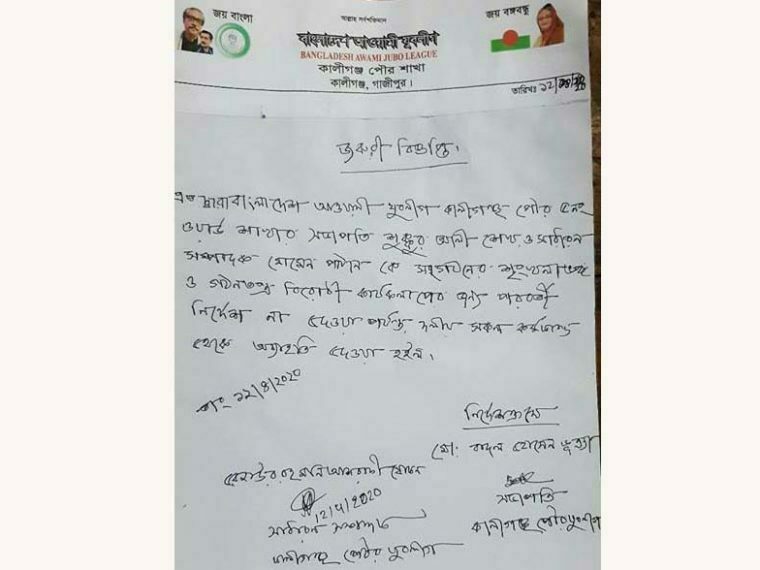 জয় বাংলা
আল্লাহ সর্বশক্তিমান
জয় বঙ্গবন্ধু
বাংলাদেশ আওয়ামী যুবলীগ
BANGLADESH AWAMI JUBO LEAGUE
কালীগঞ্জ পৌর শাখা
কালীগঞ্জ, গাজীপুর।
তারিখঃ ১২/
জরুরী বিজ্ঞপ্তি।
এত দ্বারা বাংলাদেশ আওয়ামী যুবলীগ কালীগঞ্জ পৌর ৫নং
ওয়ার্ড শাখার সভাপতি শুক্কুর আলী শেখ ও সাধারন
সম্পাদক হোসেন পাঠান কে সংগঠনের শৃংখলা ভঙ্গ
ও গঠনতন্ত্র বিরোধী কার্যকলাপের জন্য পরবর্তী
নির্দেশ না দেওয়া পর্যন্ত দলীয় সকল কর্মকান্ড
থেকে অব্যাহতি দেওয়া হইল।
তাং ১২/৪/২০২০
নির্দেশক্রমে
মো: বাদল হোসেন ভূইয়া
রেজাউর রহমান আশরাফী খোকন
12/4/2020
সভাপতি
সাধারন সম্পাদক
কালীগঞ্জ পৌর যুবলীগ
কালীগঞ্জ পৌর যুবলীগ